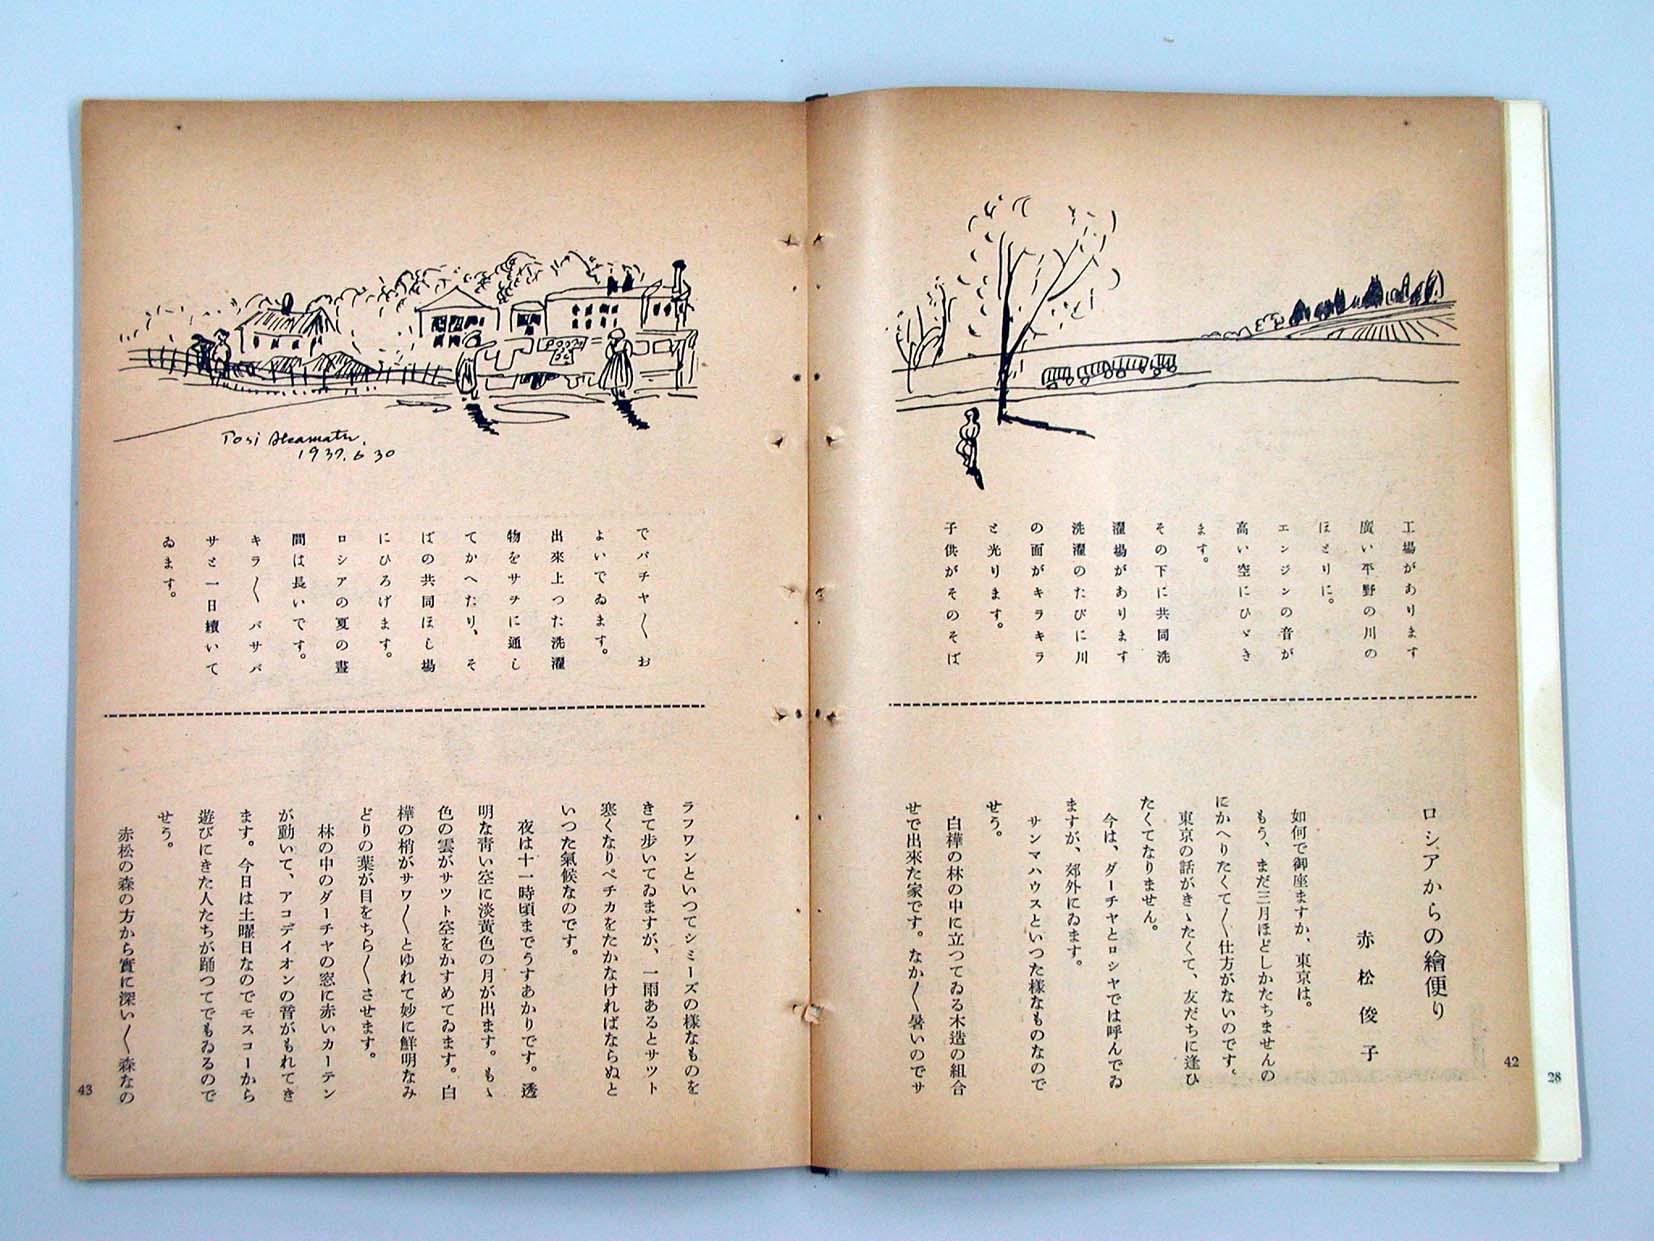 工場があります
廣い平野の川の
ほとりに。
エンジンの音が
高い空にひゞき
ます。
その下に共同洗
濯場があります
洗濯のたびに川
の面がキラキラ
と光ります。
子供がそのそば
でパチヤ〳〵お
よいでゐます。
出來上つた洗濯
物をサヲに通し
てかへたり、そ
ばの共同ほし場
にひろげます。
ロシアの夏の晝
間は長いです。
キラ〳〵パサパ
サと一日續いて
ゐます。
Tosi Akamatu.
1937.6 30
ロシアからの繪便り
赤松俊子
如何で御座ますか、東京は。
もう、まだ三月ほどしかたちませんの
にかへりたくて〳〵仕方がないのです。
東京の話がきゝたくて、友だちに逢ひ
たくてなりません。
今は、ダーチヤとロシヤでは呼んでゐ
ますが、郊外にゐます。
サンマハウスといつた様なものなので
せう。
白樺の林の中に立つてゐる木造の組合
せで出來た家です。なか〳〵暑いのでサ
ラフワンといつてシミーズの様なものを
きて歩いてゐますが、一雨あるとサツト
寒くなりペチカをたかなければならぬと
いつた氣候なのです。
夜は十一時頃までうすあかりです。透
明な靑い空に淡黃色の月が出ます。もゝ
色の雲がサツト空をかすめてゐます。白
樺の梢がサワ〳〵とゆれて妙に鮮明なみ
どりの葉が目をちら〳〵させます。
林の中のダーチヤの窓に赤いカーテン
が動いて、アコデイオンの音がもれてき
ます。今日は土曜日なのでモスコーから
遊びにきた人たちが踊つてでもゐるので
せう。
赤松の森の方から實に深い〳〵森なの
42
43
28